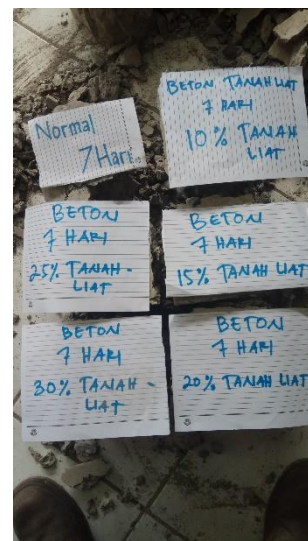 Normal
7 Hari
BETON TANAH LIAT
7 HARI
10% TANAH
LIAT
BETON
7 HARI
25% TANAH -
LIAT
BETON
7 HARI
15% TANAH LIAT
BETON
7 HARI
30% TANAH -
LIAT
BETON
7 HARI
20% TANAH LIAT